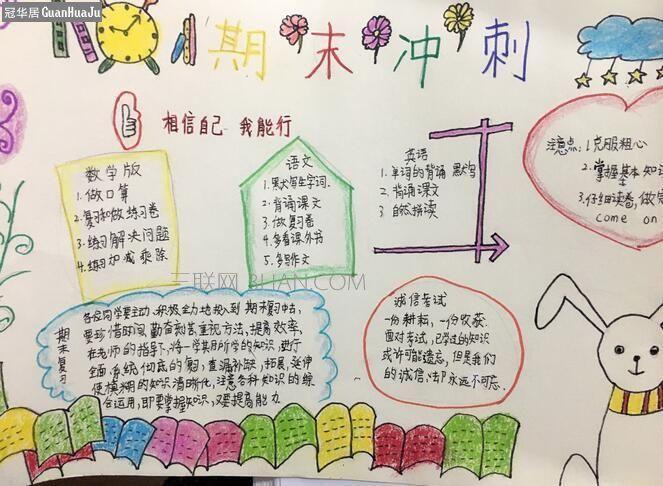 冠华居 GuanHuaJu
期末冲刺
相信自己 我能行
数学版
1.做口算
2.复习和做练习卷
3.练习解决问题
4.练习加减乘除
语文
1.默写生字词.
2.背诵课文
3.做复习卷
4.多看课外书
5.多写作文
英语
1.单词的背诵 默写
2.背诵课文
3.自然拼读
注意点:1克服粗心
2.掌握基本知识
3.仔细读卷,做完
come on
三联网 3LIAN.COM
期末复习
各位同学要主动、积极、全力地投入到期末复习中去,
要珍惜时间,勤奋刻苦,重视方法,提高效率,
在老师的指导下,将一学期所学的知识,进行
全面,系统,彻底的复习,查漏补缺,拓展,延伸
使模糊的知识清晰化,注意各种知识的综
合运用,即要掌握知识,又要提高能力
诚信考试
一份耕耘,一份收获.
面对考试,已学过的知识
或许可能遗忘,但是我们
的诚信,却永远不可忘.